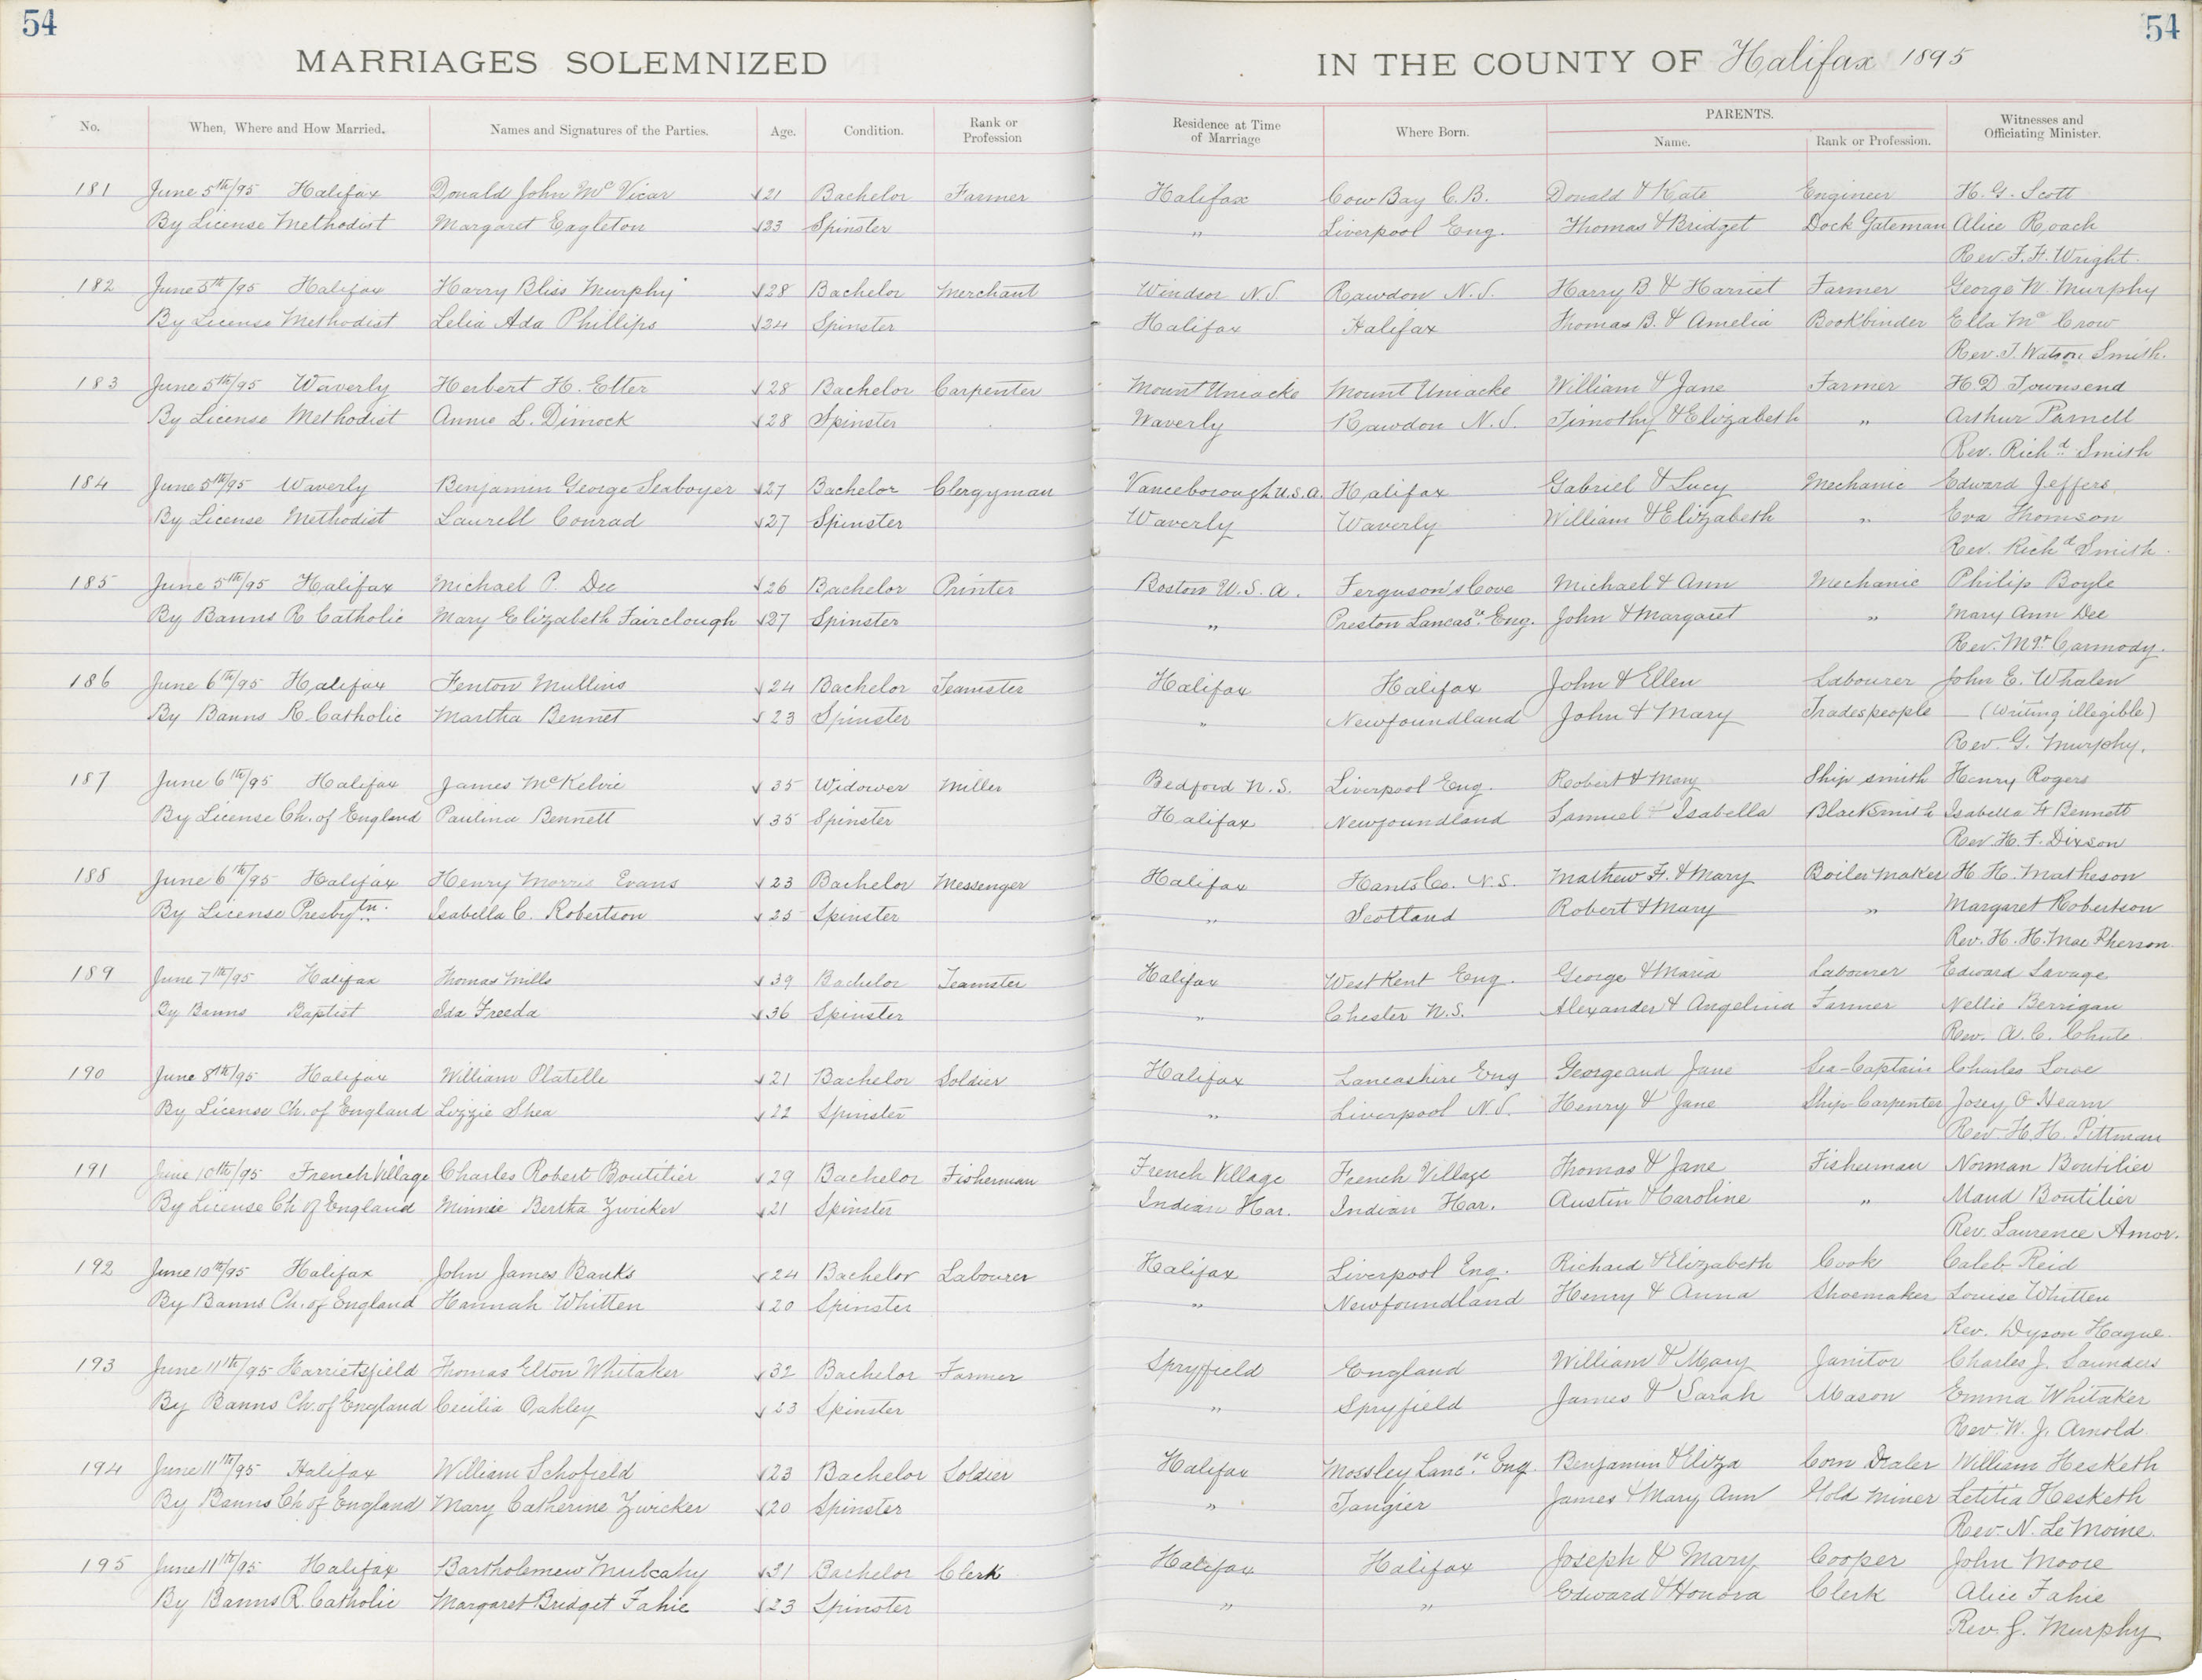 54
54
MARRIAGES SOLEMNIZED IN THE COUNTY OF Halifax 1895
No. When, Where and How Married. Names and Signatures of the Parties. Age. Condition. Rank or Profession Residence at Time of Marriage Where Born. PARENTS. Name. Rank or Profession. Witnesses and Officiating Minister.
181 June 5th/95 Halifax Donald John McVicar 21 Bachelor Farmer Halifax Cow Bay C.B. Donald & Kate Engineer H. G. Scott
By License Methodist Margaret Eagleton 23 Spinster " Liverpool Eng. Thomas & Bridget Dock Gateman Alice Roach
Rev. F. H. Wright.
182 June 5th/95 Halifax Harry Bliss Murphy 28 Bachelor Merchant Windsor N.S. Rawdon N.S. Harry B & Harriet Farmer George W. Murphy
By License Methodist Lelia Ada Phillips 24 Spinster Halifax Halifax Thomas B. & Amelia Bookbinder Ella McCrow
Rev. T. Watson Smith.
183 June 5th/95 Waverly Herbert H. Etter 28 Bachelor Carpenter Mount Uniacke Mount Uniacke William & Jane Farmer H D Townsend
By License Methodist Annie L. Dimock 28 Spinster Waverly Rawdon N.S. Timothy & Elizabeth " Arthur Parnell
Rev. Richd Smith
184 June 5th/95 Waverly Benjamin George Seaboyer 27 Bachelor Clergyman Vanceborough U.S.A. Halifax Gabriel & Lucy Mechanic Edward Jeffers
By License Methodist Laurell Conrad 27 Spinster Waverly Waverly William & Elizabeth " Eva Thomson
Rev. Richd Smith.
185 June 5th/95 Halifax Michael P. Dee 26 Bachelor Printer Boston U.S.A. Ferguson's Cove Michael & Ann Mechanic Philip Boyle
By Banns R Catholic Mary Elizabeth Fairclough 27 Spinster " Preston Lancasre. Eng. John & Margaret " Mary Ann Dee
Rev. Mgr. Carmody.
186 June 6th/95 Halifax Fenton Mullins 24 Bachelor Teamster Halifax Halifax John & Ellen Labourer John E. Whalen
By Banns R. Catholic Martha Bennet 23 Spinster " Newfoundland John & Mary Tradespeople — (writing illegible)
Rev. G. Murphy.
187 June 6th/95 Halifax James McKelvie 35 Widower Miller Bedford N.S. Liverpool Eng. Robert & Mary Ship smith Henry Rogers
By License Ch. of England Paulina Bennett 35 Spinster Halifax Newfoundland Samuel & Isabella Blacksmith Isabella H Bennett
Rev. H. F. Dixson
188 June 6th/95 Halifax Henry Morris Evans 23 Bachelor Messenger Halifax Hants Co. N.S. Mathew F. & Mary Boiler Maker H. H. Matheson
By License Presbytn. Isabella C. Robertson 25 Spinster " Scotland Robert & Mary " Margaret Robertson
Rev. H. H. MacPherson
189 June 7th/95 Halifax Thomas Mills 39 Bachelor Teamster Halifax West Kent Eng. George & Maria Labourer Edward Savage
By Banns Baptist Ida Freeda 36 Spinster " Chester N.S. Alexander & Angelina Farmer Nellie Berrigan
Rev. A. C. Chute
190 June 8th/95 Halifax William Platelle 21 Bachelor Soldier Halifax Lancashire Eng George and Jane Sea-Captain Charles Lowe
By License Ch. of England Lizzie Shea 22 Spinster " Liverpool N.S. Henry & Jane Ship Carpenter Josey O Hearn
Rev. H. H. Pittman
191 June 10th/95 French Village Charles Robert Boutilier 29 Bachelor Fisherman French Village French Village Thomas & Jane Fisherman Norman Boutilier
By License Ch of England Minnie Bertha Zwicker 21 Spinster Indian Har. Indian Har. Austin & Caroline " Maud Boutilier
Rev. Laurence Amor.
192 June 10th/95 Halifax John James Banks 24 Bachelor Labourer Halifax Liverpool Eng. Richard & Elizabeth Cook Caleb Reid
By Banns Ch. of England Hannah Whitten 20 Spinster " Newfoundland Henry & Anna Shoemaker Louise Whitten
Rev. Dyson Hague.
193 June 11th/95 Harrietsfield Thomas Elton Whitaker 32 Bachelor Farmer Spryfield England William & Mary Janitor Charles J. Saunders
By Banns Ch. of England Cecilia Oakley 23 Spinster " Spryfield James & Sarah Mason Emma Whitaker
Rev. W. J. Arnold
194 June 11th/95 Halifax William Schofield 23 Bachelor Soldier Halifax Mossley Lancre. Eng. Benjamin & Eliza Corn Dealer William Hesketh
By Banns Ch of England Mary Catherine Zwicker 20 Spinster " Tangier James & Mary Ann Gold Miner Letitia Hesketh
Rev. N. LeMoine.
195 June 11th/95 Halifax Bartholemew Mulcahy 31 Bachelor Clerk Halifax Halifax Joseph & Mary Cooper John Moore
By Banns R. Catholic Margaret Bridget Fahie 23 Spinster " " Edward & Honora Clerk Alice Fahie
Rev. G. Murphy